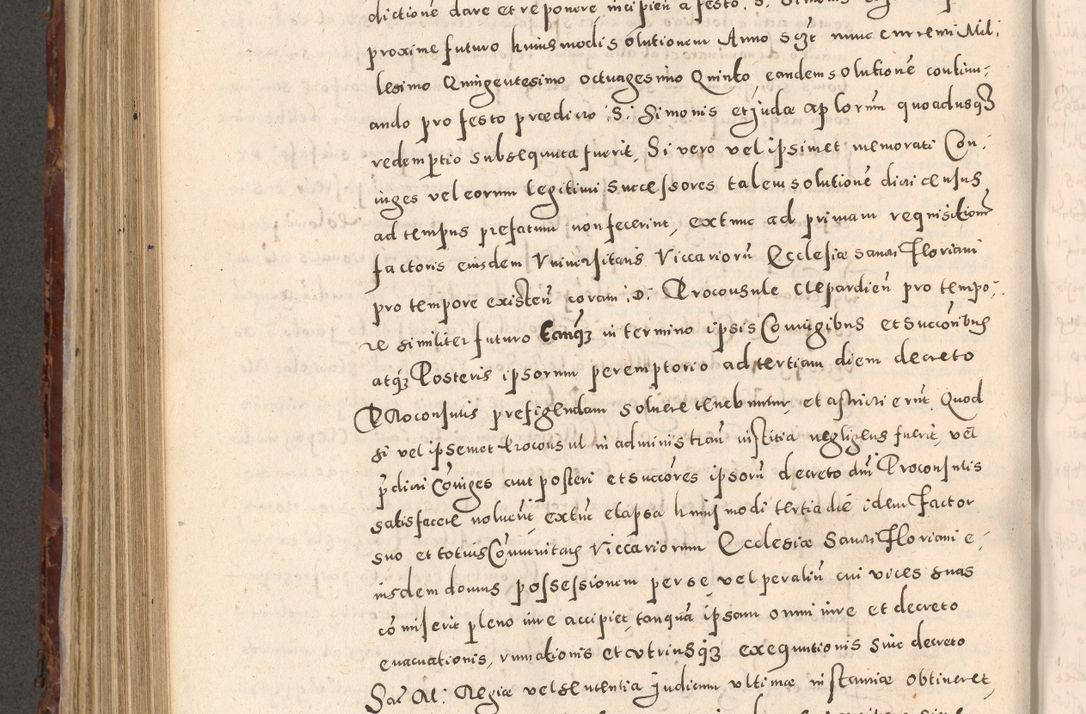 dictionē dare et reponere incipien a festo. S. Simonis
proxime futuro huiusmodi solutionem Anno sc̄z nunc currenti Mil:
lesimo Quingentesimo octuagesimo Quinto, eandem solutionē continu:
ando pro festo prædicto .S: Simonis et Judæ aplorum quoadusq3
redemptio subsequuta fuerit, Si vero vel ipsimet memorati Con:
iuges vel eorum legitimi successores talem solutionē dicti census
ad tempus prefatum non fecerint, extunc ad primam requisitionē
factoris eiusdem Vniuersitatis Viccariorū Ecclesiæ sancti Floriani
pro tempore existeñ coram .D: Proconsule Clepardieñ pro tempo:
re similiter futuro Eamq3 in termino ipsis Coniugibus et succōribus
atq3 Posteris ipsorum peremptorio ad tertiam diem decreto
Proconsulis prefigendam soluere tenebuntur, et astricti erūt. Quod
si vel ipsemet Proconsul in administrañ iustitia negligens fuerit, vel
p̄dicti Cōniuges aut posteri et succōres ipsorū decreto dn̄i Proconsulis
satisfacere noluerit extūc elapsa huiusmodi tertia diē idem Factor
suo et totius Cōmunitatis Viccariorum Ecclesiæ Sancti Floriani e:
iusdem domus possessionem per se, vel per aliū cui vices suas
cōmiserit pleno iure accipiet, tanquā ipsam omni iure et decreto
euacuationis, rumationis et vtriusq3 exequutionis siue decreto
Sac. M: Regiæ vel sententia Judicum vltimæ instantiæ obtineret,